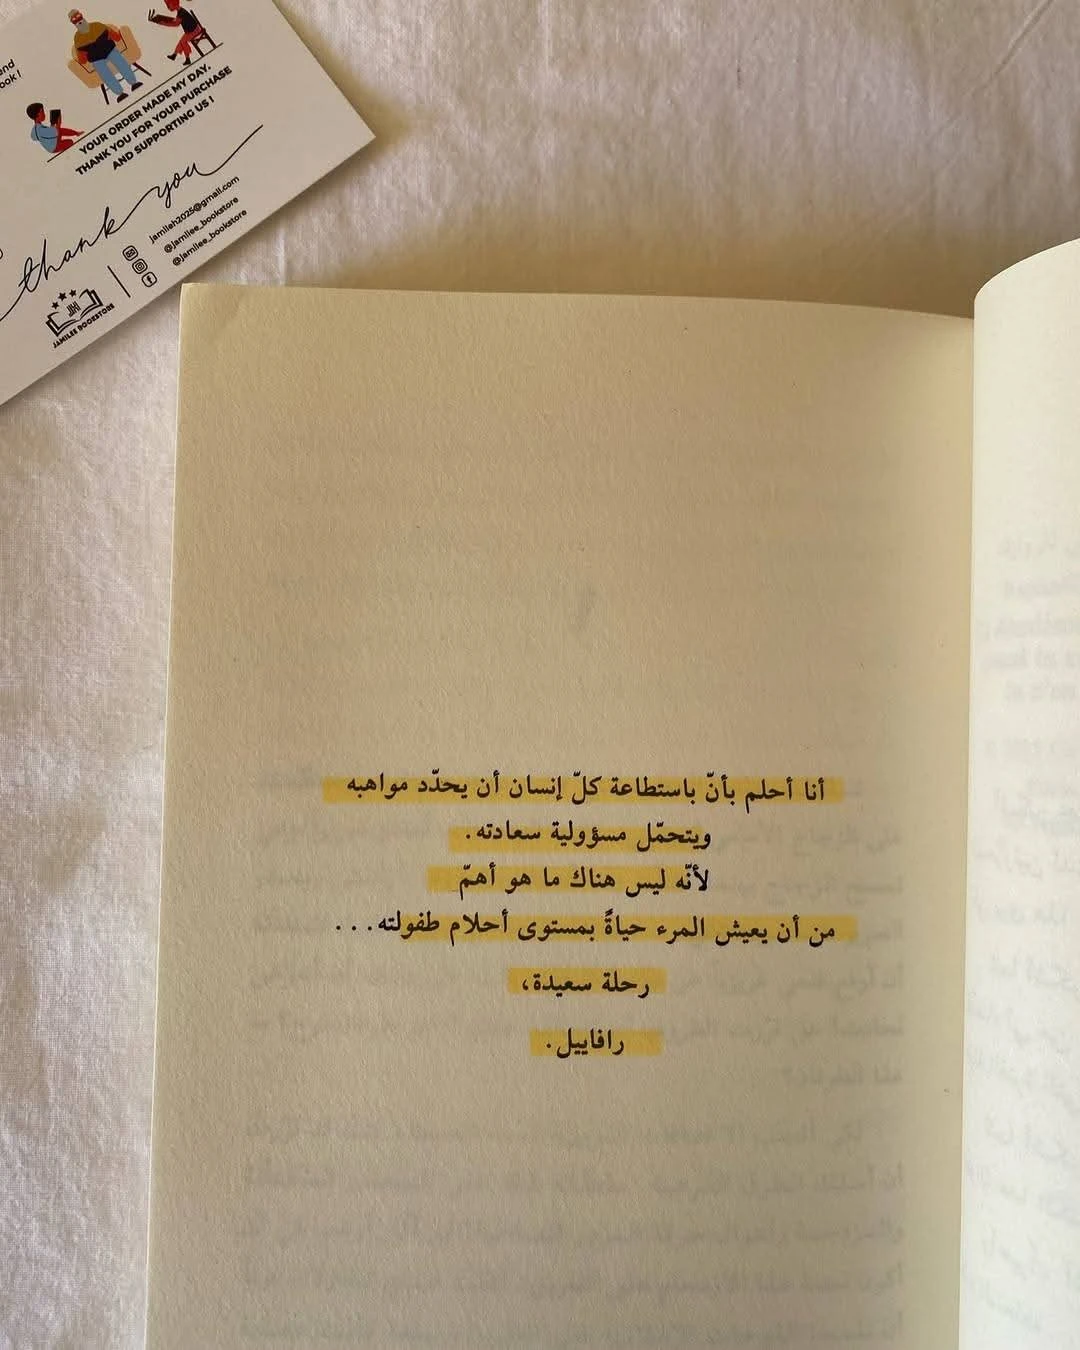 YOUR ORDER MADE MY DAY.
THANK YOU FOR YOUR PURCHASE
AND SUPPORTING US !
thank you
jamileh2025@gmail.com
@jamilee_bookstore
@jamilee_bookstore
JAMILEE BOOKSTORE
أنا أحلم بأنّ باستطاعة كلّ إنسان أن يحدّد مواهبه
ويتحمّل مسؤولية سعادته.
لأنّه ليس هناك ما هو أهمّ
من أن يعيش المرء حياةً بمستوى أحلام طفولته...
رحلة سعيدة،
رافاييل.